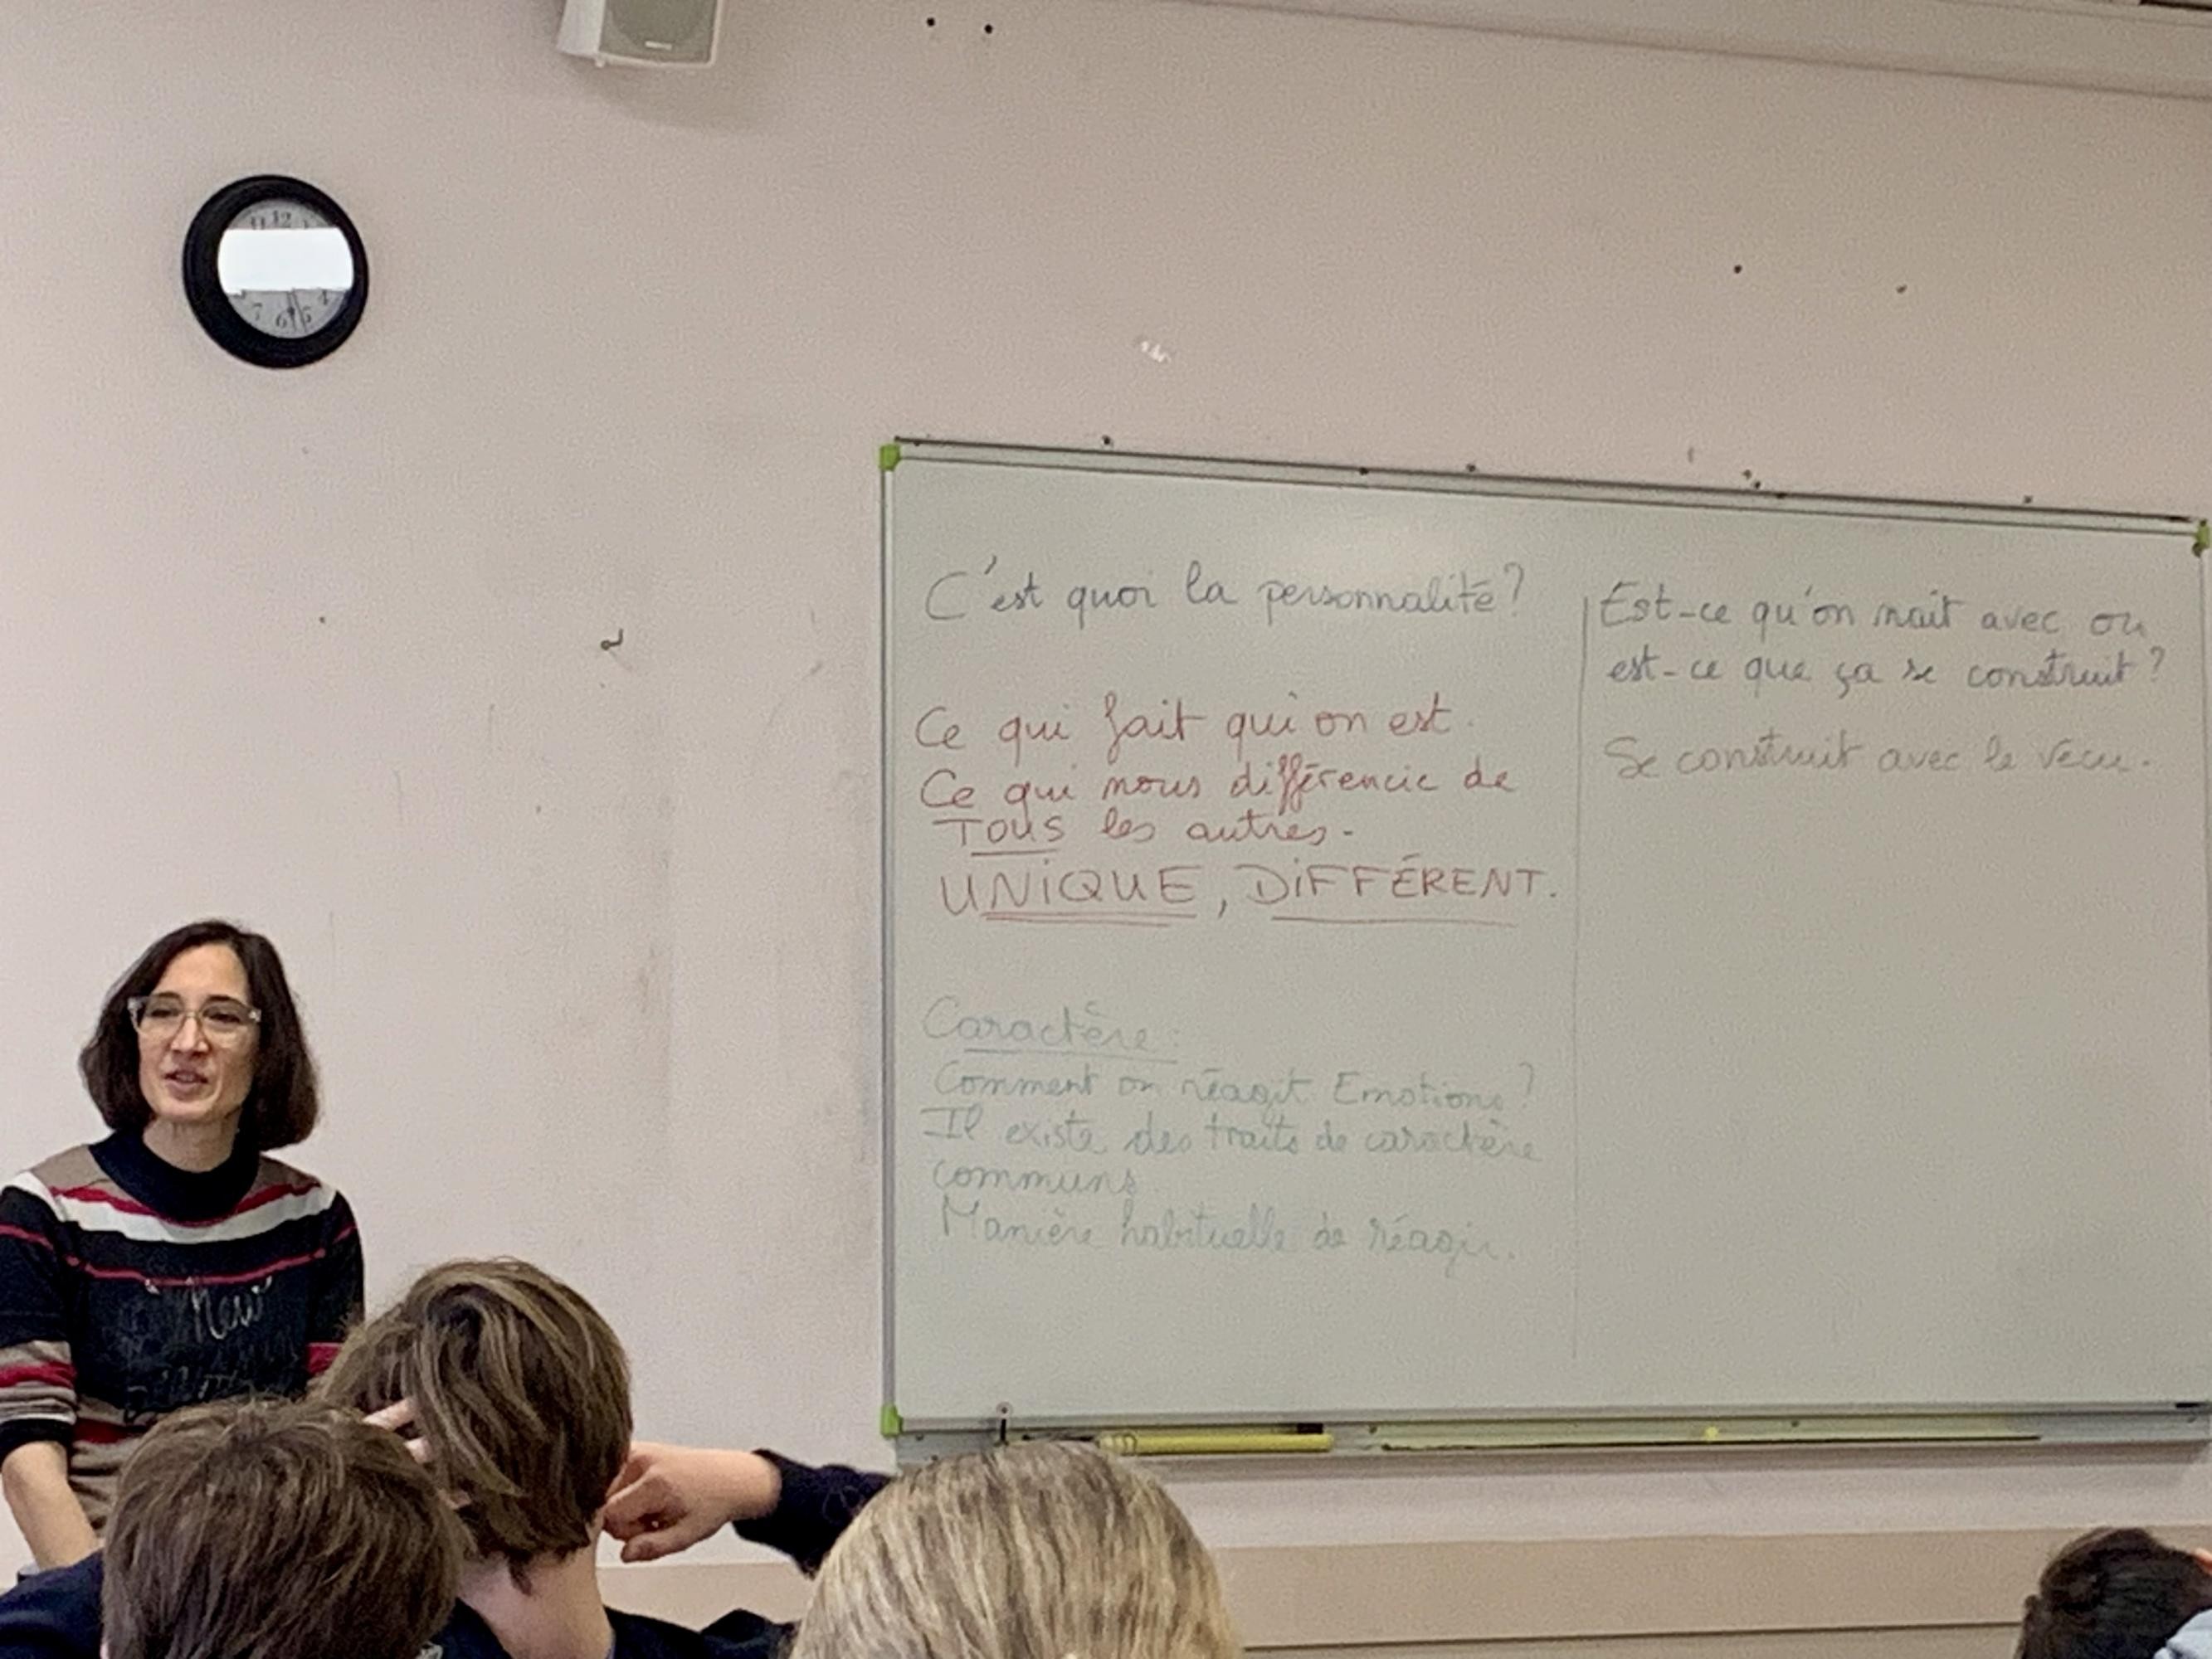 12
11
4
7
6
5
C'est quoi la personnalité?
Ce qui fait qui on est.
Ce qui nous différencie de
TOUS les autres.
UNIQUE, DIFFÉRENT.
Caractère:
Comment on réagit Emotions?
Il existe des traits de caractère
communs
Manière habituelle de réagir.
Est-ce qu'on nait avec ou
est-ce que ça se construit?
Se construit avec le vécu.